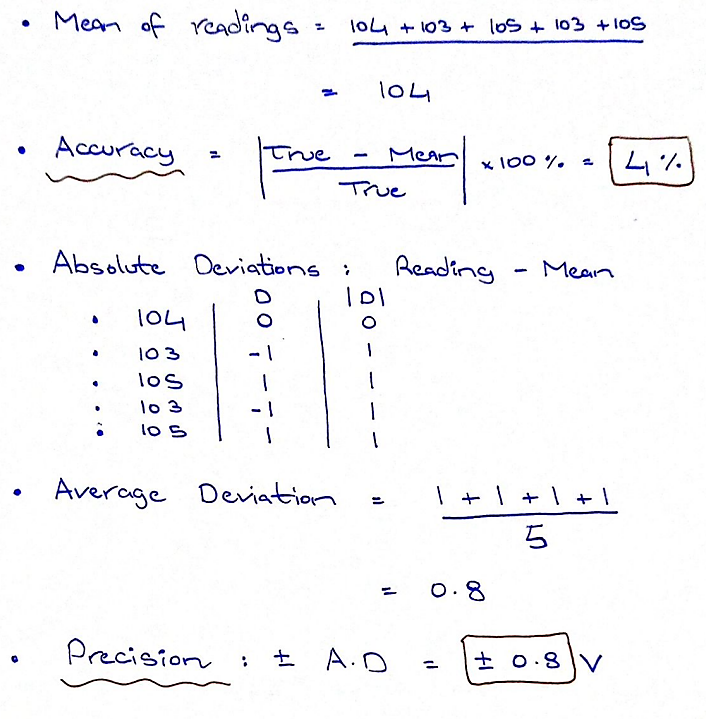 • Mean of readings = 104 + 103 + 105 + 103 + 105
= 104
• Accuracy = |True - Mean / True| × 100 % = 4 %
• Absolute Deviations : Reading - Mean
D |D|
• 104 0 0
• 103 -1 1
• 105 1 1
• 103 -1 1
• 105 1 1
• Average Deviation = 1 + 1 + 1 + 1
5
= 0.8
• Precision : ± A.D = ± 0.8 V